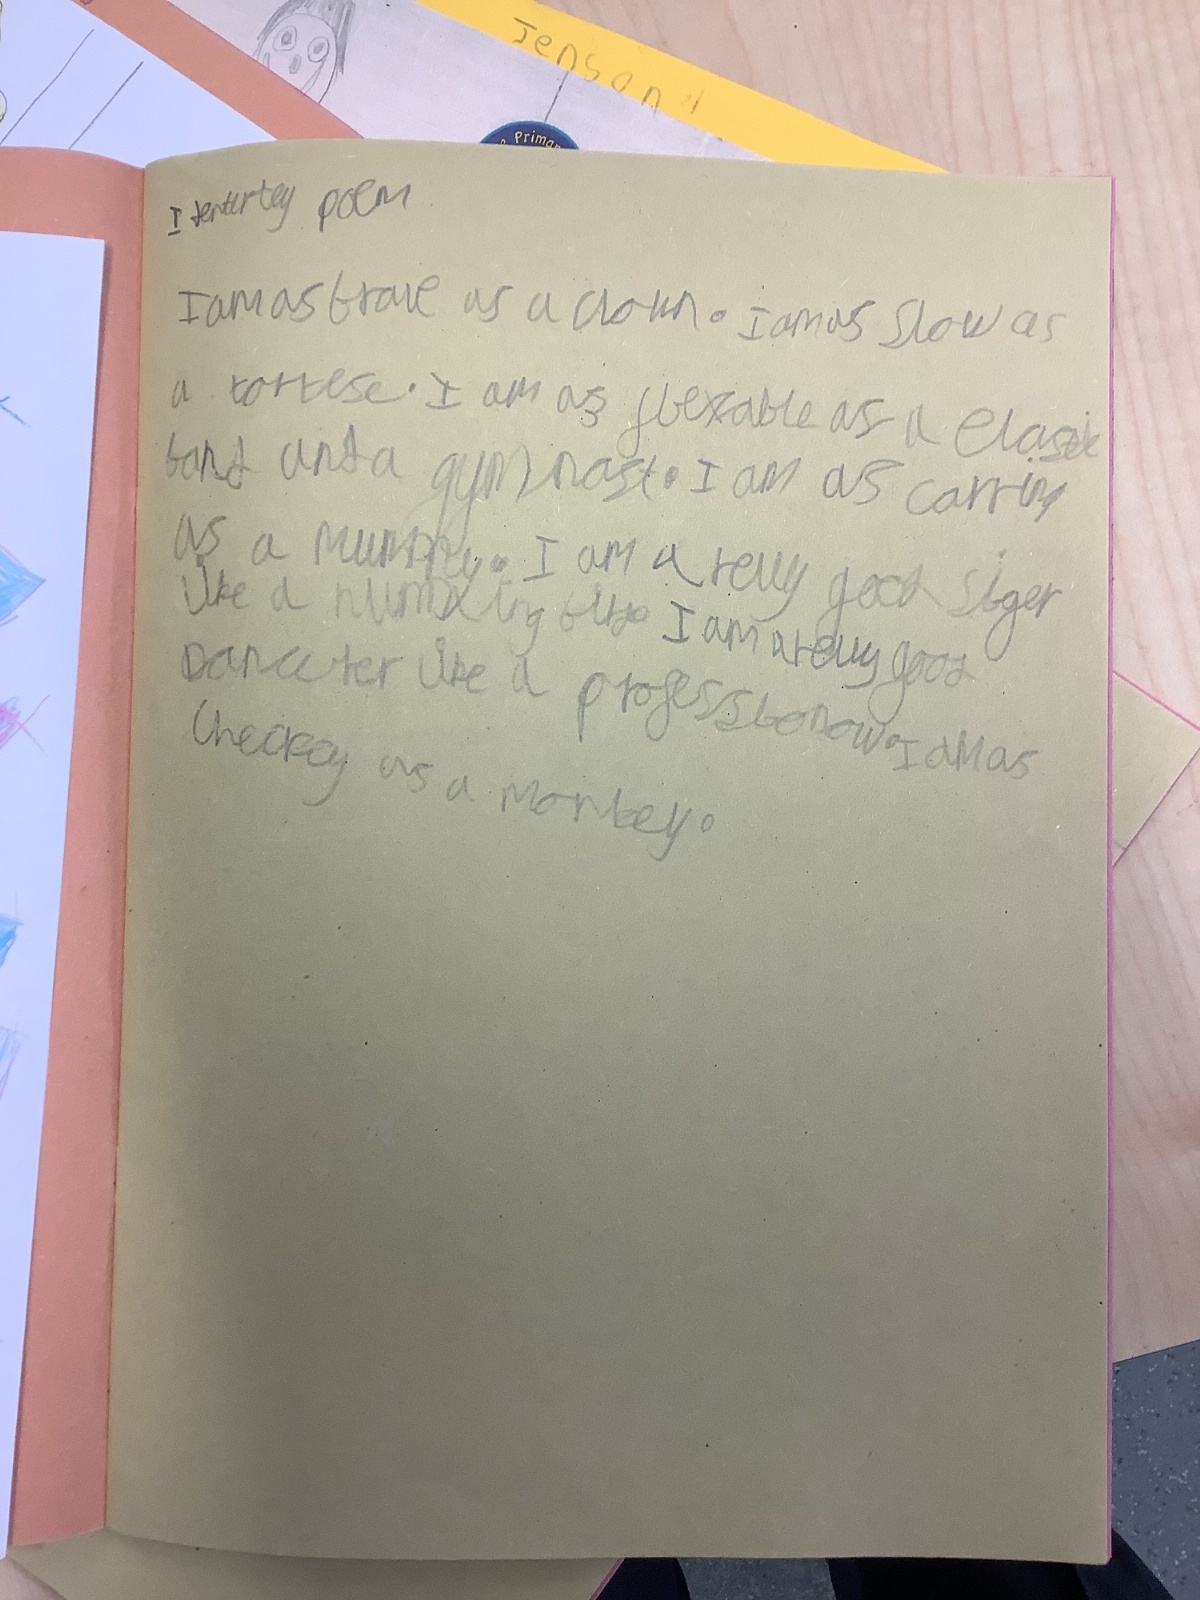 Jensen
Prima
Identertey poem
I am as brave as a clown. I am as slow as
a tortese. I am as flexable as a elastic
band and a gymnast. I am as carring
as a mummy. I am a relly good siger
like a huming
I am a relly good
Danceter like a professionow. I am as
cheekey as a monkey.